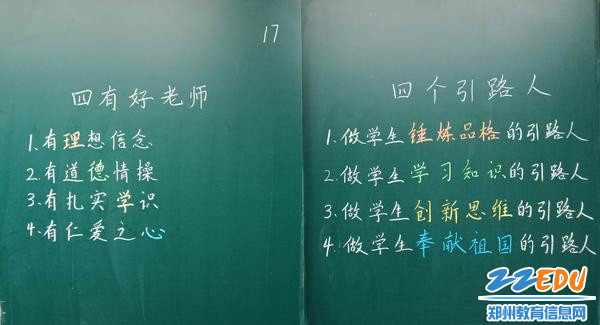 17
四有好老师
1.有理想信念
2.有道德情操
3.有扎实学识
4.有仁爱之心
四个引路人
1.做学生锤炼品格的引路人
2.做学生学习知识的引路人
3.做学生创新思维的引路人
4.做学生奉献祖国的引路人
ZZEDU
郑州教育信息网